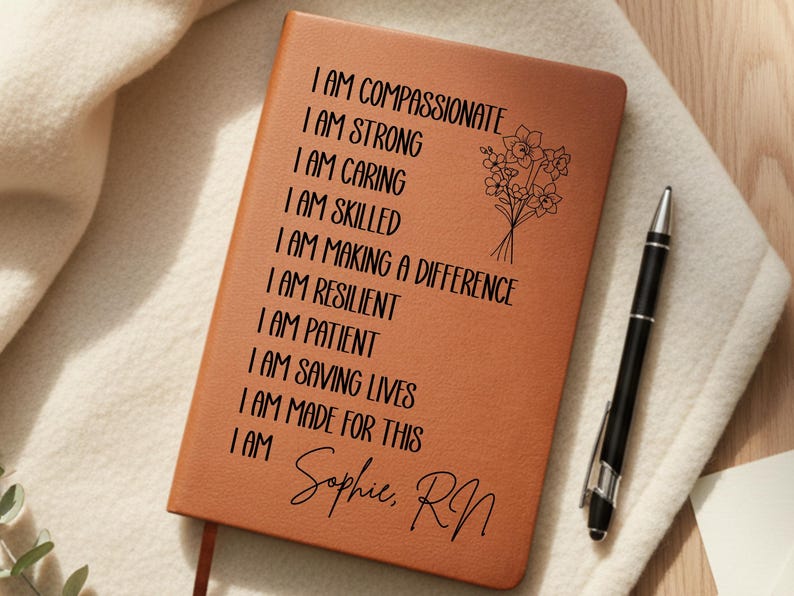 I AM COMPASSIONATE
I AM STRONG
I AM CARING
I AM SKILLED
I AM MAKING A DIFFERENCE
I AM RESILIENT
I AM PATIENT
I AM SAVING LIVES
I AM MADE FOR THIS
I AM Sophie, RN